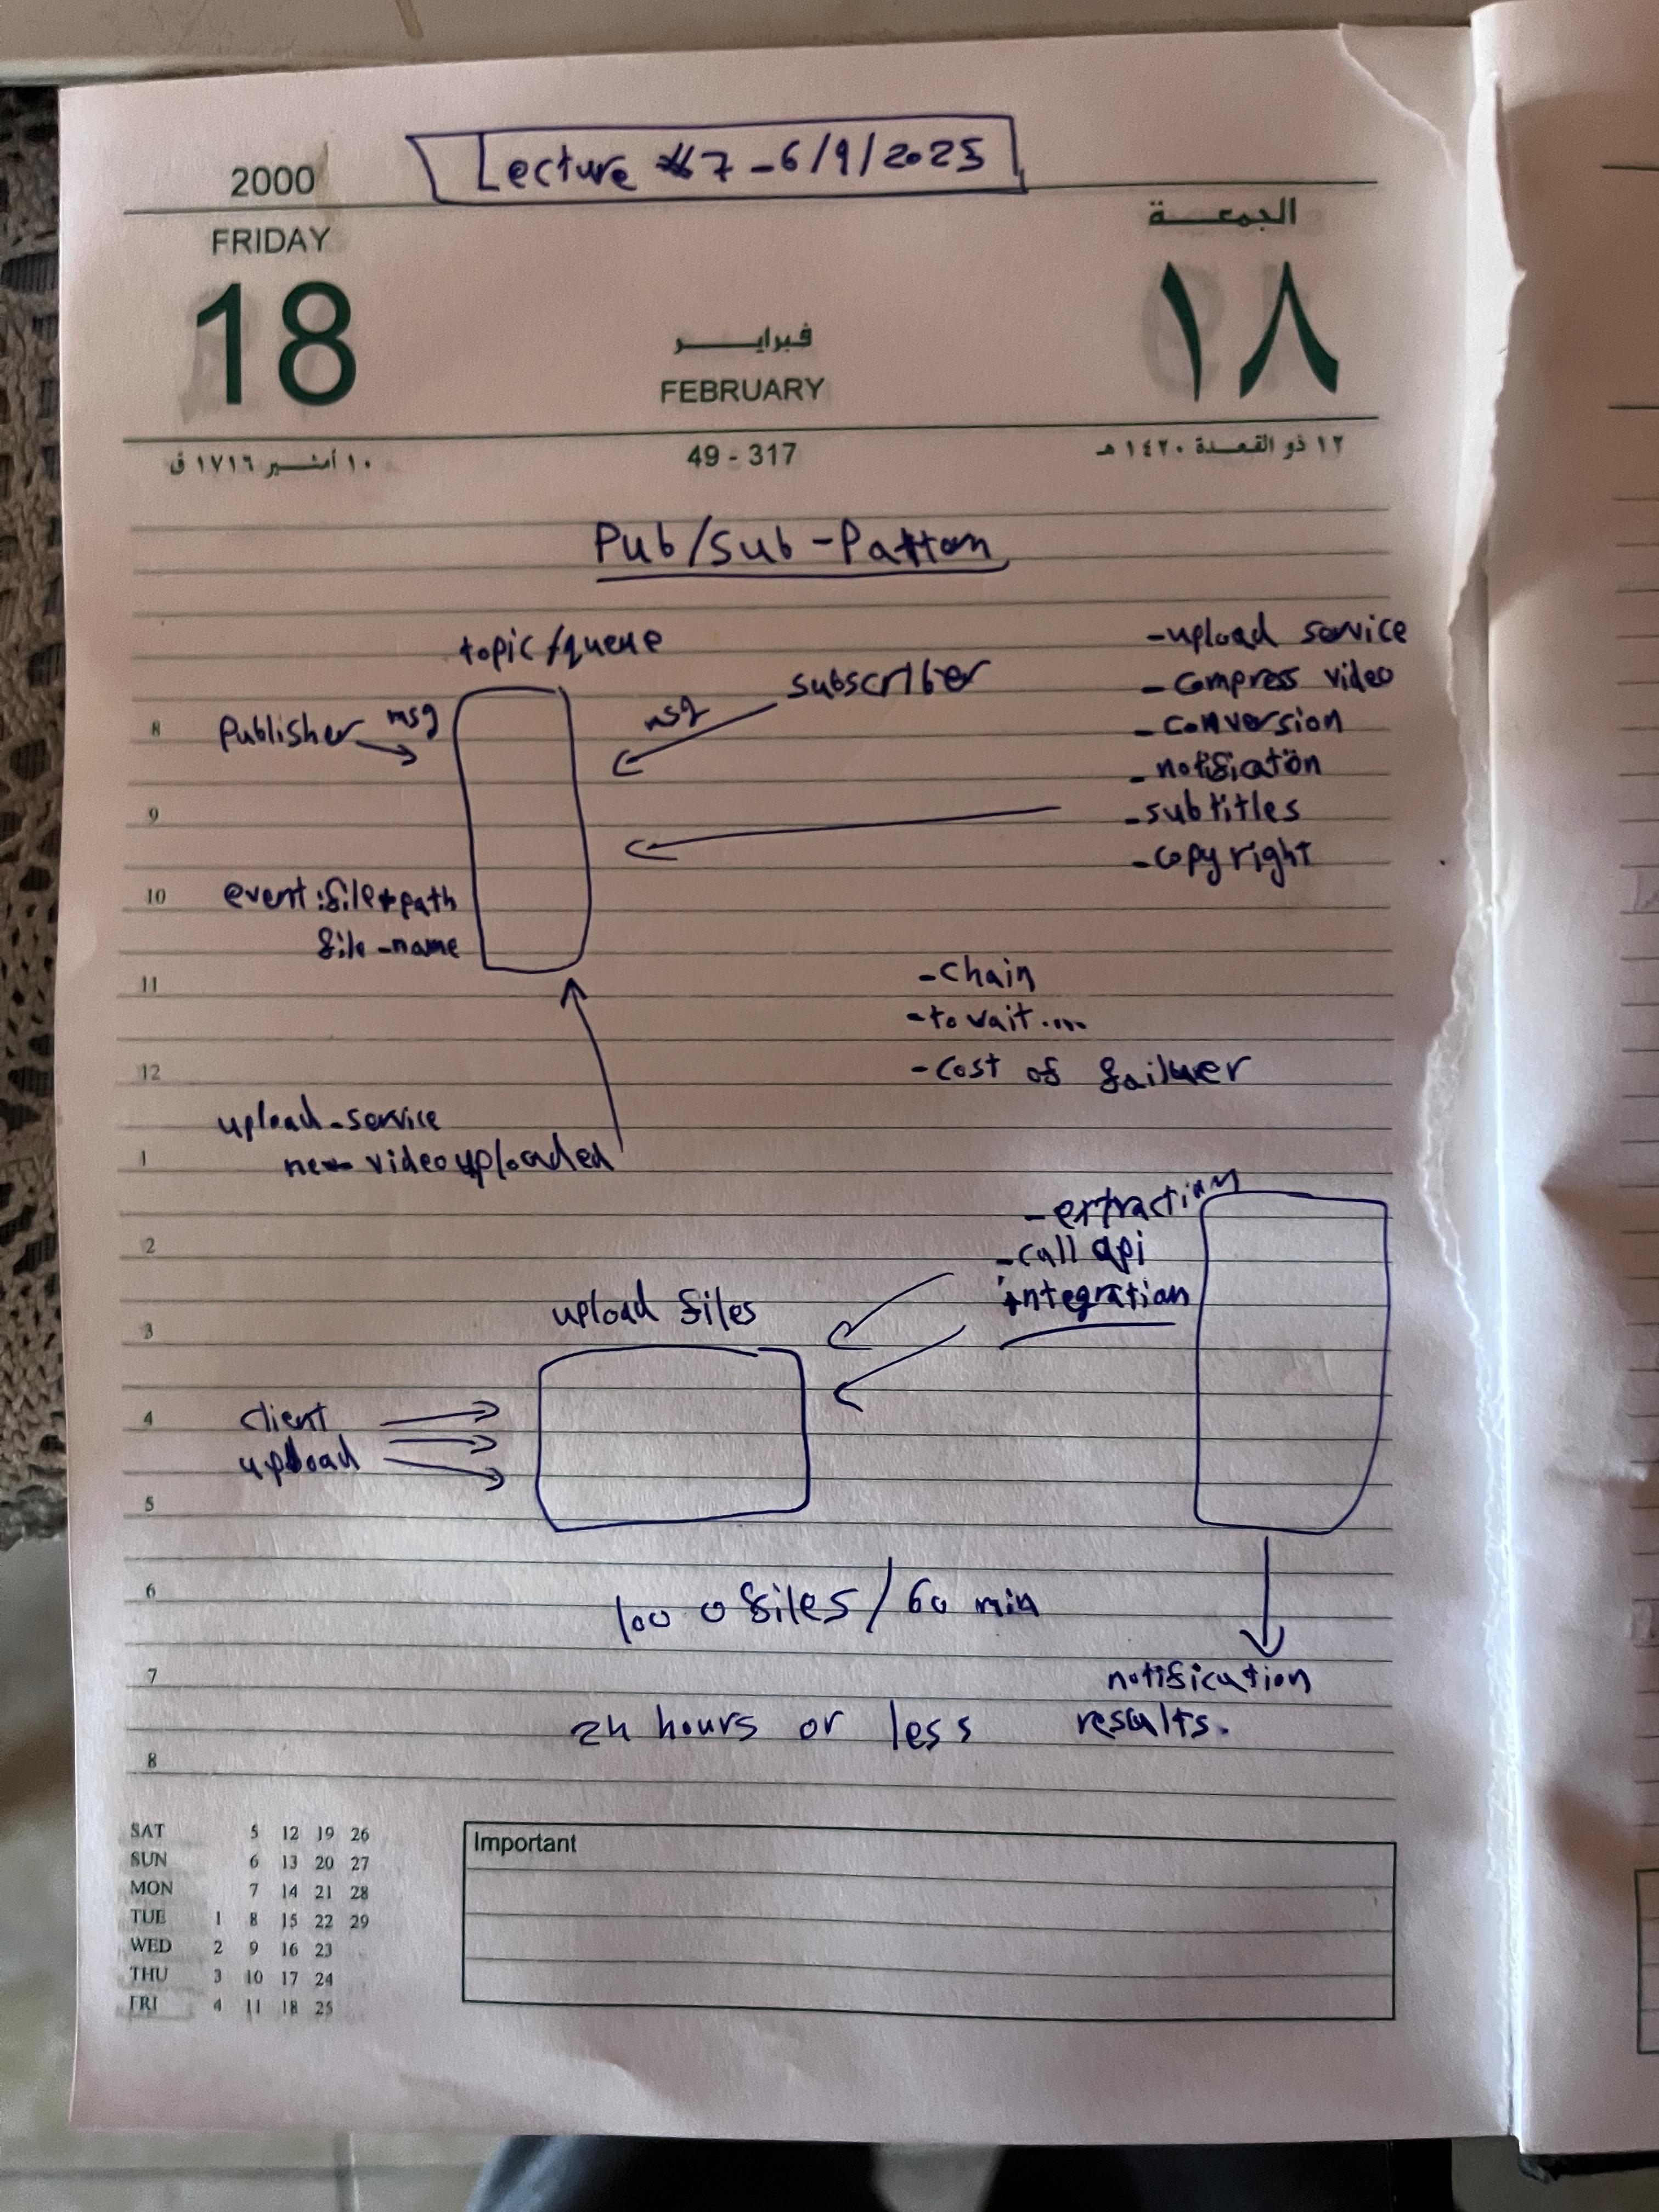 Lecture #7 - 6/9/2025
2000
FRIDAY
18
الجمعة
١٨
فبراير
FEBRUARY
١٠ أمشير ١٧١٦ ق
49 - 317
١٢ ذو القعدة ١٤٢٠ هـ
Pub/Sub - Pattern
topic/queue
Publisher msg
msg subscriber
-upload service
- compress video
- conversion
- notification
- subtitles
- copyright
event: file+path
file-name
- chain
- to wait ....
- cost of failuer
upload-service
new video uploaded
- extraction
- call api
integration
upload files
client
upload
1000 files / 60 min
notification
results.
24 hours or less
8
9
10
11
12
1
2
3
4
5
6
7
8
SAT 5 12 19 26
SUN 6 13 20 27
MON 7 14 21 28
TUE 1 8 15 22 29
WED 2 9 16 23
THU 3 10 17 24
FRI 4 11 18 25
Important